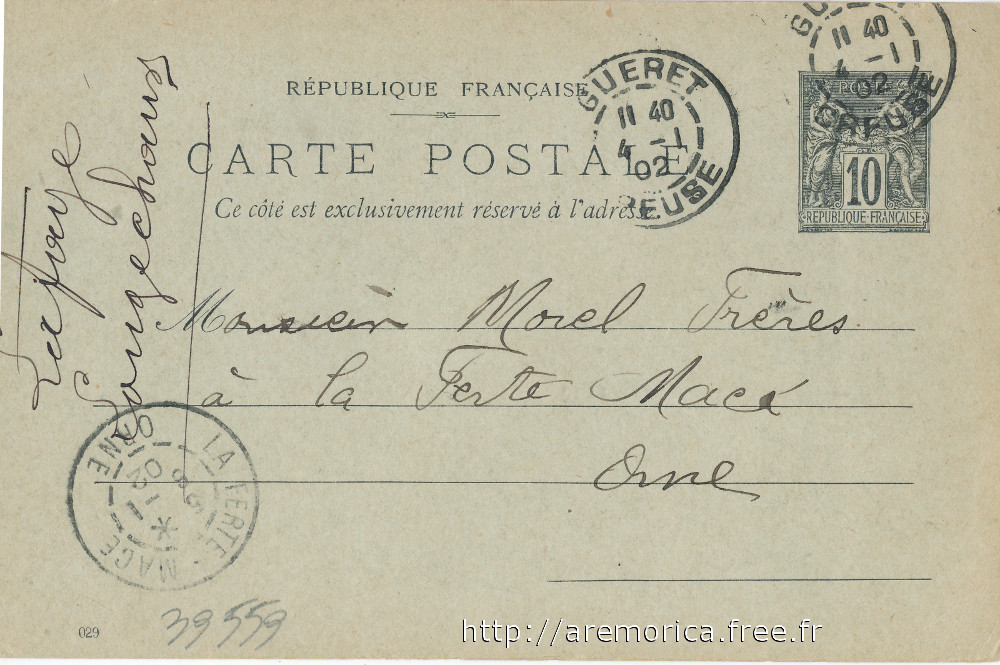 RÉPUBLIQUE FRANÇAISE
CARTE POSTALE
Ce côté est exclusivement réservé à l'adresse
GUERET
11 40
4 -1
02
CREUSE
GUERET
11 40
4 -1
02
CREUSE
POSTES
10
REPUBLIQUE FRANÇAISE
Monsieur Morel Frères
à la Ferte Macé
Orne
Laforge
Longechaux
LA FERTE-MACE
ORNE
39559
029
http://aremorica.free.fr